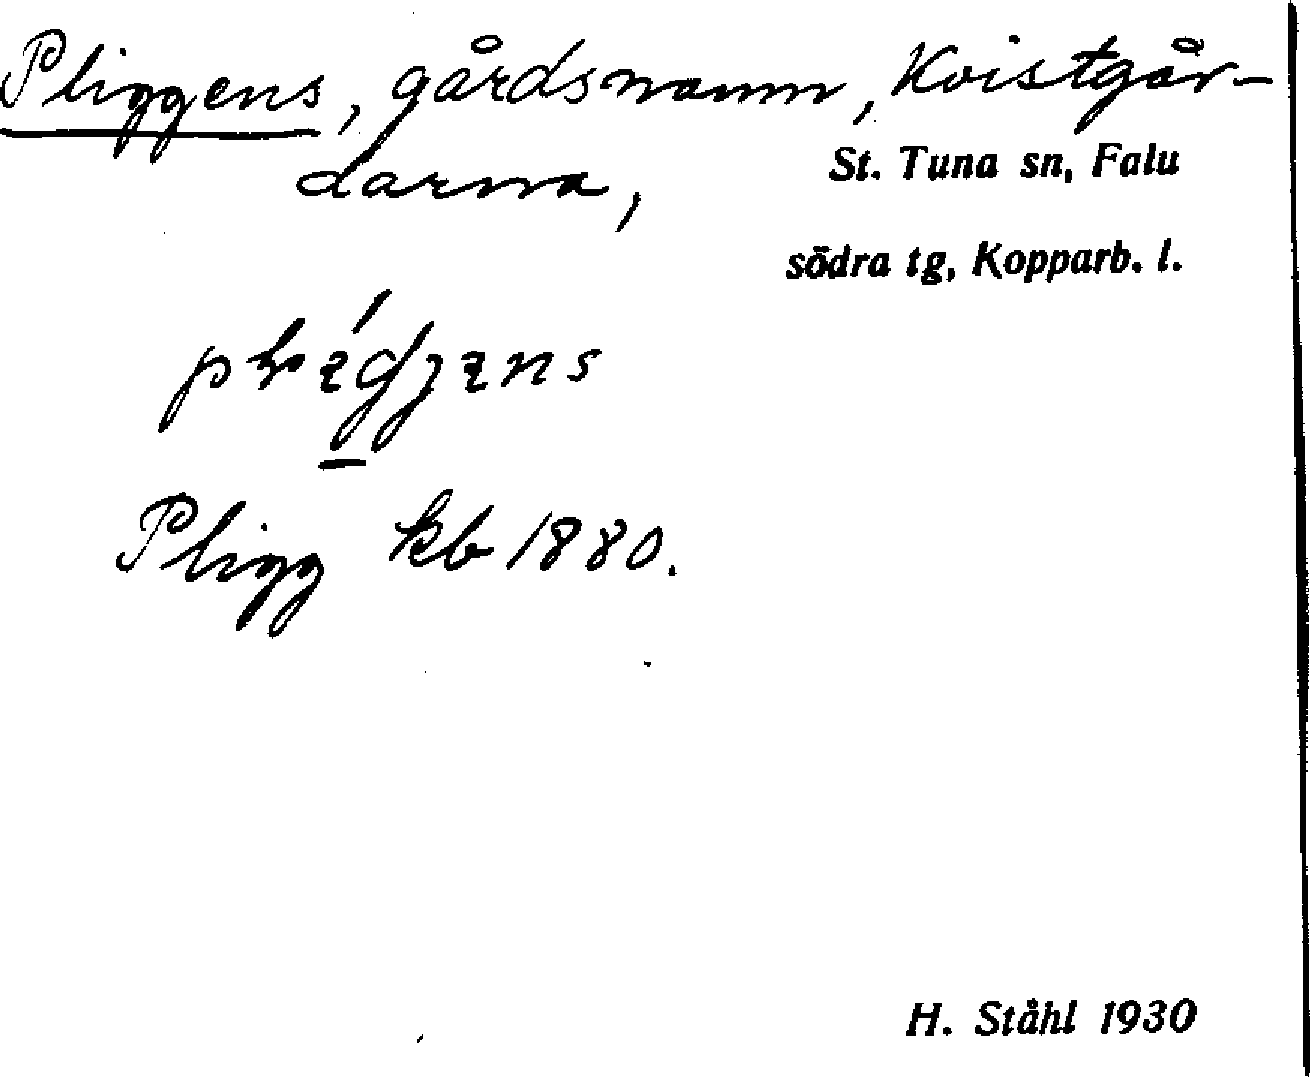 Pliggens, gårdsnamn, Kvistgår-
darna,
St. Tuna sn, Falu
södra tg, Kopparb. l.
Pligg kb 1880.
H. Ståhl 1930